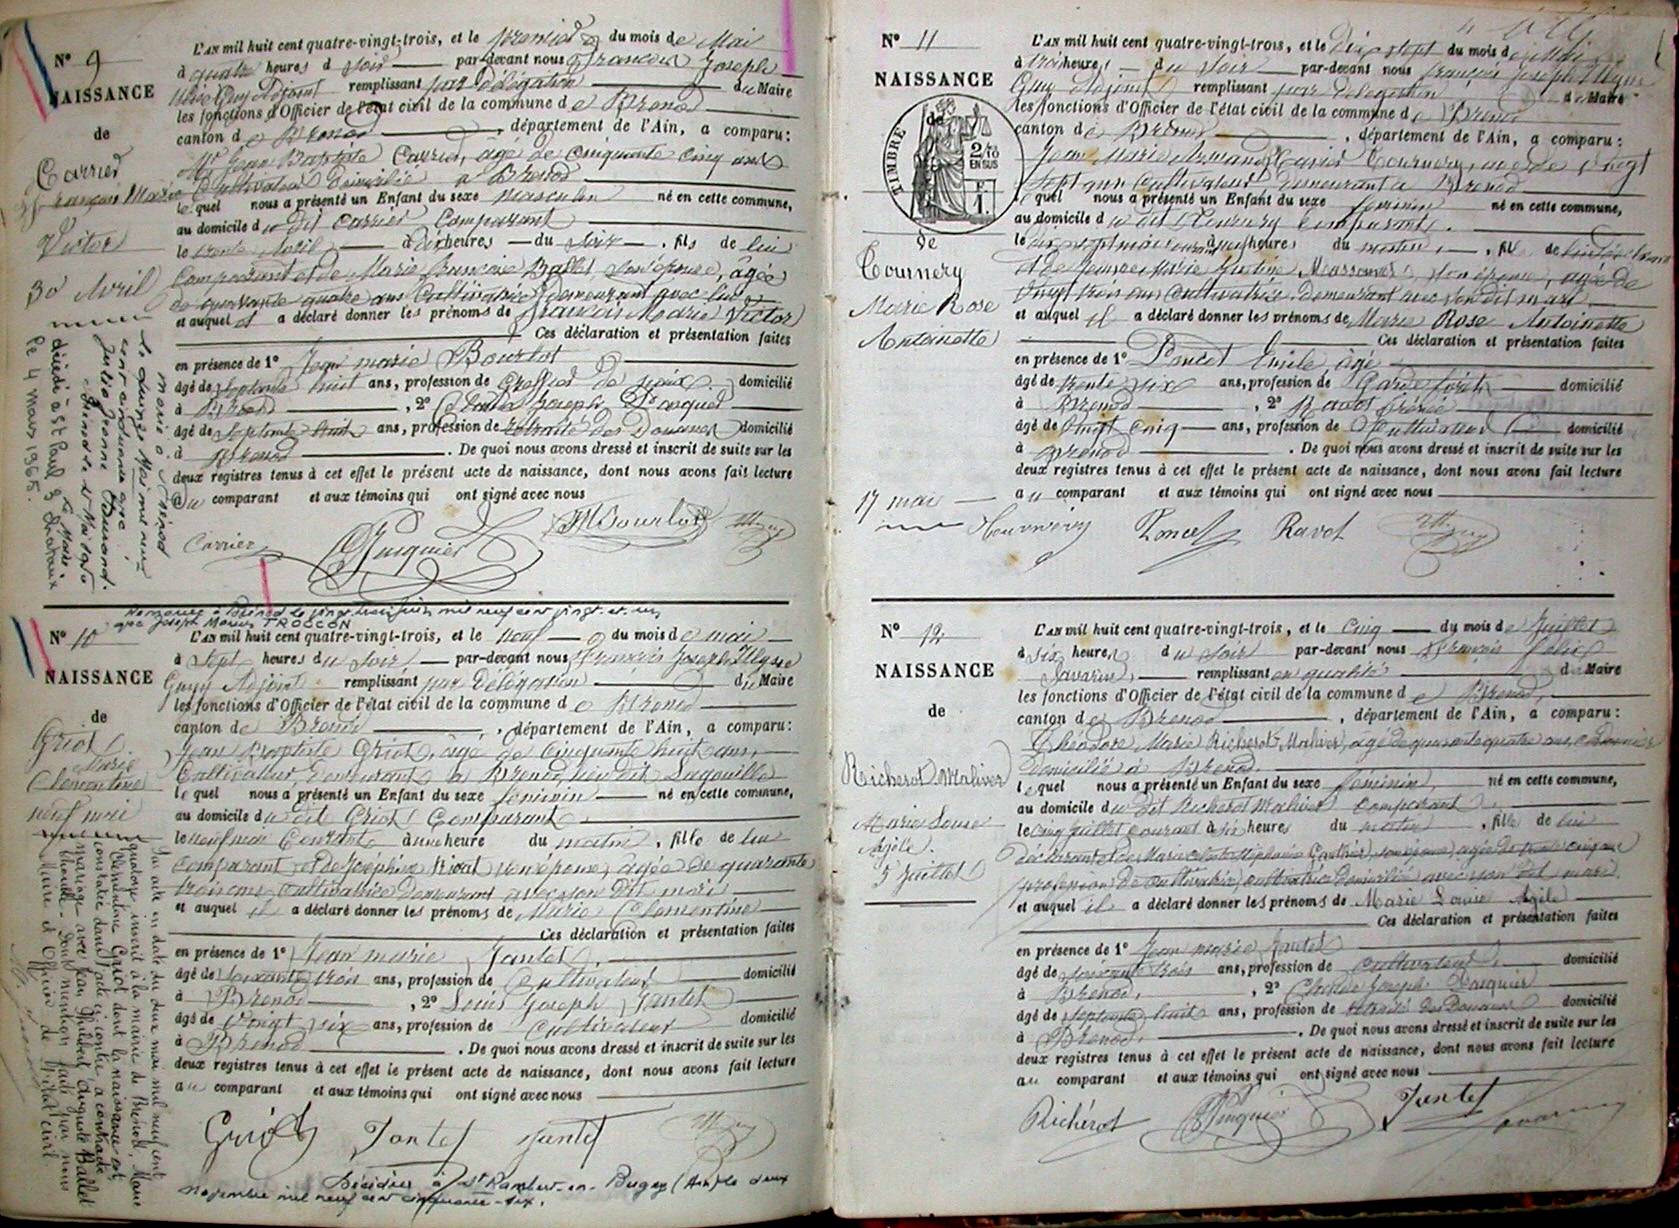 N° 9
NAISSANCE
de
Carrier
François Marie
Victor
30 Avril
L'AN mil huit cent quatre-vingt-trois, et le premier du mois de Mai
à quatre heures d soir par-devant nous François Joseph
Guy Adjoint remplissant par délégation du Maire
les fonctions d'Officier de l'état civil de la commune de Brenod
canton de Brenod, département de l'Ain, a comparu:
Mr Jean Baptiste Carrier, âgé de cinquante cinq ans
Cultivateur domicilié à Brenod
lequel nous a présenté un Enfant du sexe masculin né en cette commune,
au domicile du dit Carrier Comparant
le trente Avril à dix heures du soir, fils de lui
Comparant et de Marie Françoise Ballet son épouse, âgée
de quarante quatre ans Cultivatrice demeurant avec lui
et auquel il a déclaré donner les prénoms de François Marie Victor
Ces déclaration et présentation faites
en présence de 1° Jean marie Bourlot
âgé de septante huit ans, profession de Greffier de paix domicilié
à Brenod, 2° Claude Joseph Pasquier
âgé de Septante huit ans, profession de retraité des Douanes domicilié
à Brenod. De quoi nous avons dressé et inscrit de suite sur les
deux registres tenus à cet effet le présent acte de naissance, dont nous avons fait lecture
au comparant et aux témoins qui ont signé avec nous
Carrier Pasquier JM Bourlot
marié à Brénod
le quinze Mai mil neuf
cent
Julie Jeanne Durand.
Brénod le 15 Mai 1910
Le Maire.
décédé à St Paul 3 Chateaux
le 4 mars 1965.
Remariée à Brénod le vingt trois juin mil neuf cent vingt-et-un
avec Joseph Marius TROCCON
N° 10
NAISSANCE
de
Griot
Marie
Clementine
neuf mai
L'AN mil huit cent quatre-vingt-trois, et le neuf du mois de mai
à sept heures du soir par-devant nous François Joseph Ulysse
Guy Adjoint remplissant par délégation du Maire
les fonctions d'Officier de l'état civil de la commune de Brenod
canton de Brenod, département de l'Ain, a comparu:
Jean Baptiste Griot, âgé de cinquante huit ans,
Cultivateur demeurant à Brenod, lieu dit Lagouille
lequel nous a présenté un Enfant du sexe feminin né en cette commune,
au domicile du dit Griot Comparant
le neuf mai Courant à une heure du matin, fille de lui
comparant et de Joséphine Rivat son épouse, âgée de quarante
trois ans, cultivatrice demeurant avec son dit mari
et auquel il a déclaré donner les prénoms de Marie Clementine
Ces déclaration et présentation faites
en présence de 1° Jean marie Jantet,
âgé de soixante trois ans, profession de Cultivateur domicilié
à Brenod, 2° Louis Joseph Jantet
âgé de Vingt six ans, profession de Cultivateur domicilié
à Brenod. De quoi nous avons dressé et inscrit de suite sur les
deux registres tenus à cet effet le présent acte de naissance, dont nous avons fait lecture
au comparant et aux témoins qui ont signé avec nous
Griot Jantet Jantet
Par acte en date du deux mai mil neuf cent
quatorze inscrit à la mairie de Brénod, Marie
Clémentine Griot dont la naissance est
constatée dans l'acte ci-contre a contracté
mariage avec Jean Philibert Auguste Ballet
Mention faite par nous
Maire et Officier de l'Etat civil.
Décédée à St Rambert-en-Bugey (Ain) le deux
novembre mil neuf cent cinquante-six.
N° 11
NAISSANCE
de
TIMBRE
2/10
EN SUS
F
1
de
Tournery
Marie Rose
Antoinette
17 mai
L'AN mil huit cent quatre-vingt-trois, et le dix sept du mois de Mai
à trois heures du soir par-devant nous François Joseph Ulysse
Guy Adjoint remplissant par délégation du Maire
les fonctions d'Officier de l'état civil de la commune de Brenod
canton de Brenod, département de l'Ain, a comparu:
Jean Marie Armand Tournery, âgé de vingt
sept ans Cultivateur demeurant à Brenod
lequel nous a présenté un Enfant du sexe feminin né en cette commune,
au domicile du dit Tournery comparant.
le dix sept mai courant à heures du matin, fille de
et de Marie Justine Massonnet, son épouse, âgée de
vingt trois ans Cultivatrice demeurant avec son dit mari
et auquel il a déclaré donner les prénoms de Marie Rose Antoinette
Ces déclaration et présentation faites
en présence de 1° Poncet Emile, âgé
âgé de trente six ans, profession de Garde forêt domicilié
à Brenod, 2° Ravot
âgé de Vingt Cinq ans, profession de Cultivateur domicilié
à Brenod. De quoi nous avons dressé et inscrit de suite sur les
deux registres tenus à cet effet le présent acte de naissance, dont nous avons fait lecture
au comparant et aux témoins qui ont signé avec nous
Tournery Poncet Ravot
N° 12
NAISSANCE
de
Richerot Maliver
Marie Louise
Agèle.
5 Juillet
L'AN mil huit cent quatre-vingt-trois, et le Cinq du mois de Juillet
à six heures du soir par-devant nous François Felix
Savarin, remplissant en qualité de Maire
les fonctions d'Officier de l'état civil de la commune de Brenod,
canton de Brenod, département de l'Ain, a comparu:
Théodore Marie Richerot-Maliver, âgé de quarante quatre ans,
domicilié à Brenod
lequel nous a présenté un Enfant du sexe féminin, né en cette commune,
au domicile du dit Richerot Maliver comparant
le cinq juillet courant à six heures du matin, fille de lui
déclarant et de Marie Gauthier, son épouse, âgée de
profession de cultivatrice domiciliée avec son dit mari.
et auquel il a déclaré donner les prénoms de Marie Louise Agèle
Ces déclaration et présentation faites
en présence de 1° Jean marie Jantet
âgé de soixante trois ans, profession de cultivateur, domicilié
à Brenod, 2° Claude Joseph Pasquier
âgé de septante huit ans, profession de retraité des Douanes domicilié
à Brénod. De quoi nous avons dressé et inscrit de suite sur les
deux registres tenus à cet effet le présent acte de naissance, dont nous avons fait lecture
au comparant et aux témoins qui ont signé avec nous
Richerot Pasquier Jantet Savarin